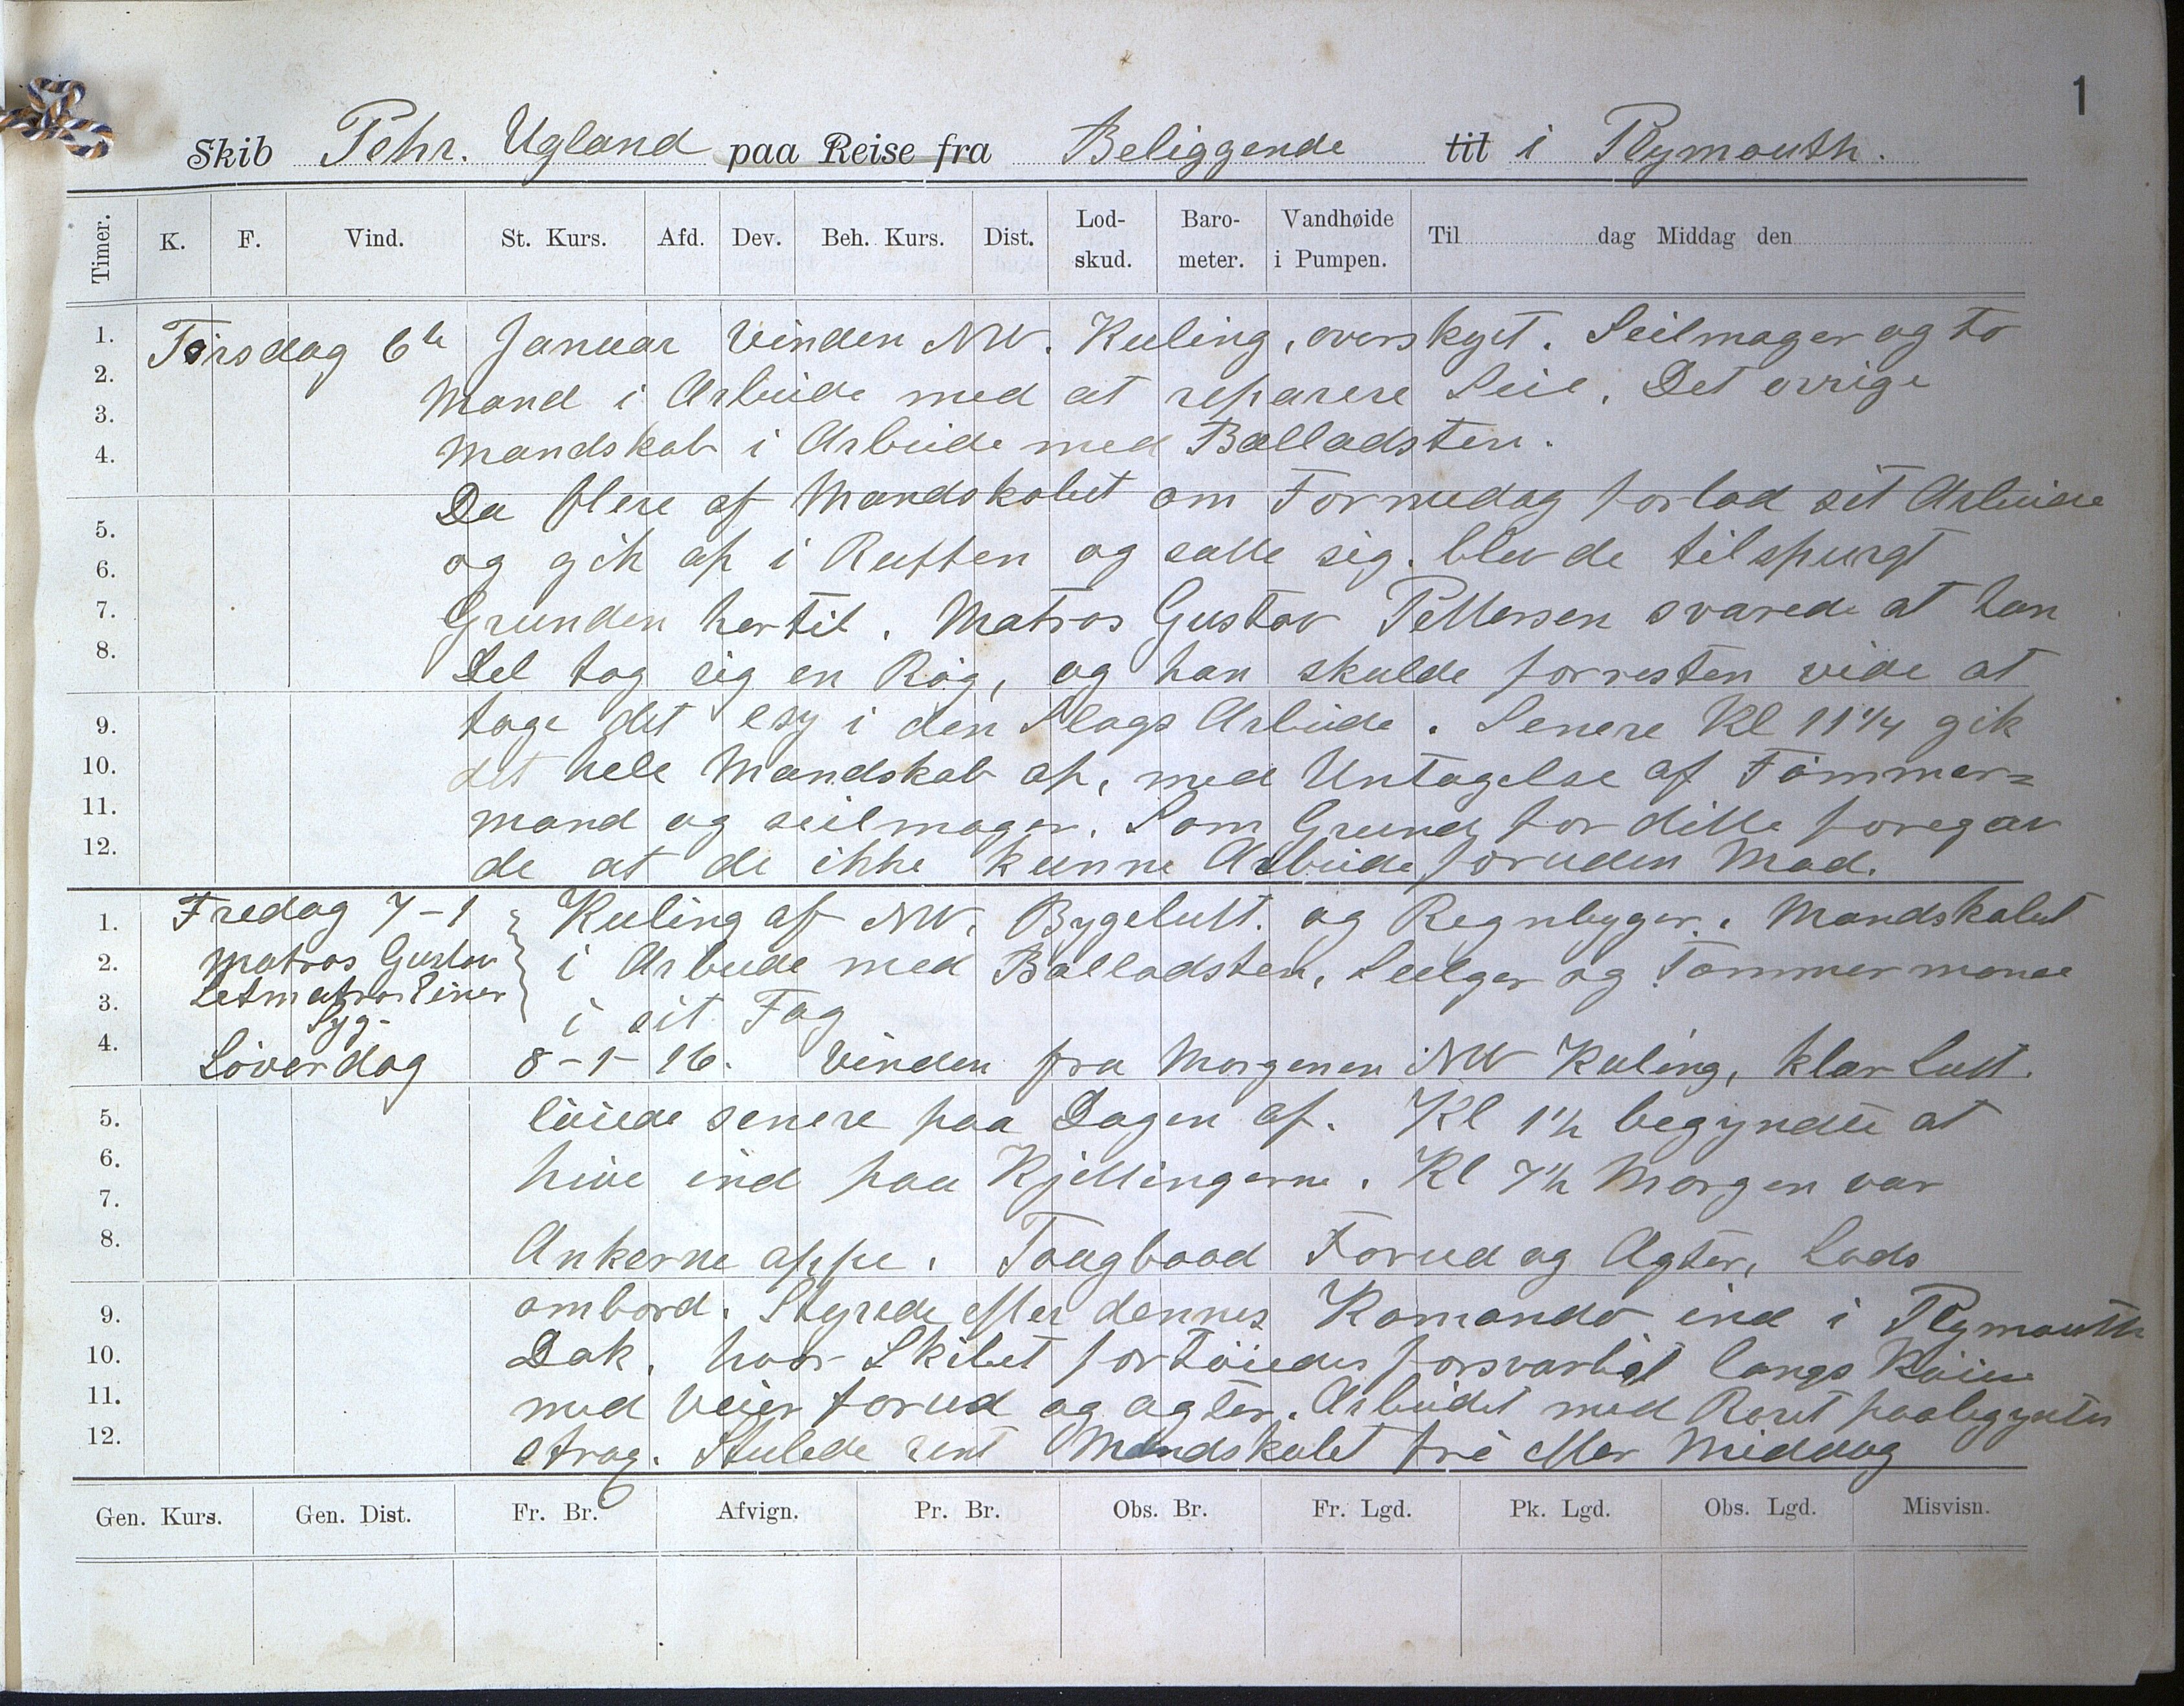 1
Skib Pehr. Ugland paa Reise fra Beliggende til i Plymouth.
Timer. K. F. Vind. St. Kurs. Afd. Dev. Beh. Kurs. Dist. Lod-skud. Baro-meter. Vandhøide i Pumpen. Til dag Middag den
1. Torsdag 6te Januar Vinden NW. Kuling, overskyet. Seilmager og to
2. Mand i Arbeide med at reparere Seil. Det øvrige
3.
4. Mandskab i Arbeide med Balladsten.
Da flere af Mandskabet om Formedag forlod sit Arbeide
5.
6. og gik op i Ruffen og satte sig. blev de tilspurgt
7. Grunden hertil. Matros Gustav Pettersen svarede at han
8. Del tog sig en Røg, og han skulde forresten vide at
9. tage det esy i den Slags Arbeide. Senere Kl 11 1/4 gik
10. det hele Mandskab op, med Untagelse af Tømmer=
11. mand og seilmager. Som Grund for dette foregav
12. de at de ikke kunne Arbeide foruden Mad.
1. Fredag 7-1 Kuling af NW. Bygeluft. og Regnbyger. Mandskabet
2. Matros Gustav i Arbeide med Balladsten, Seilger og Tømmermand
3. Letmatros Einer i sit Fag
Syg-
4. Löverdag 8-1-16. Vinden fra Morgenen NW Kuling, klar Luft.
5. løiede senere paa Dagen af. Kl 1 1/2 begyndte at
6. hive ind paa Kjettingerne. Kl 7 1/2 Morgen var
7.
8. Ankerne oppe. Taugbaad Forud og Agter, Lods
9. ombord. Styrede efter dennes Komando ind i Plymouth
10. Dok. hvor Skibet fortøiedes forsvarligt langs Kaien
11. med Veier forud og agter. Arbeidet med Roret paabegyntes
12. strax. Stuede rent Mandskabet fri efter Middag
Gen. Kurs. Gen. Dist. Fr. Br. Afvign. Pr. Br. Obs. Br. Fr. Lgd. Pk. Lgd. Obs. Lgd. Misvisn.